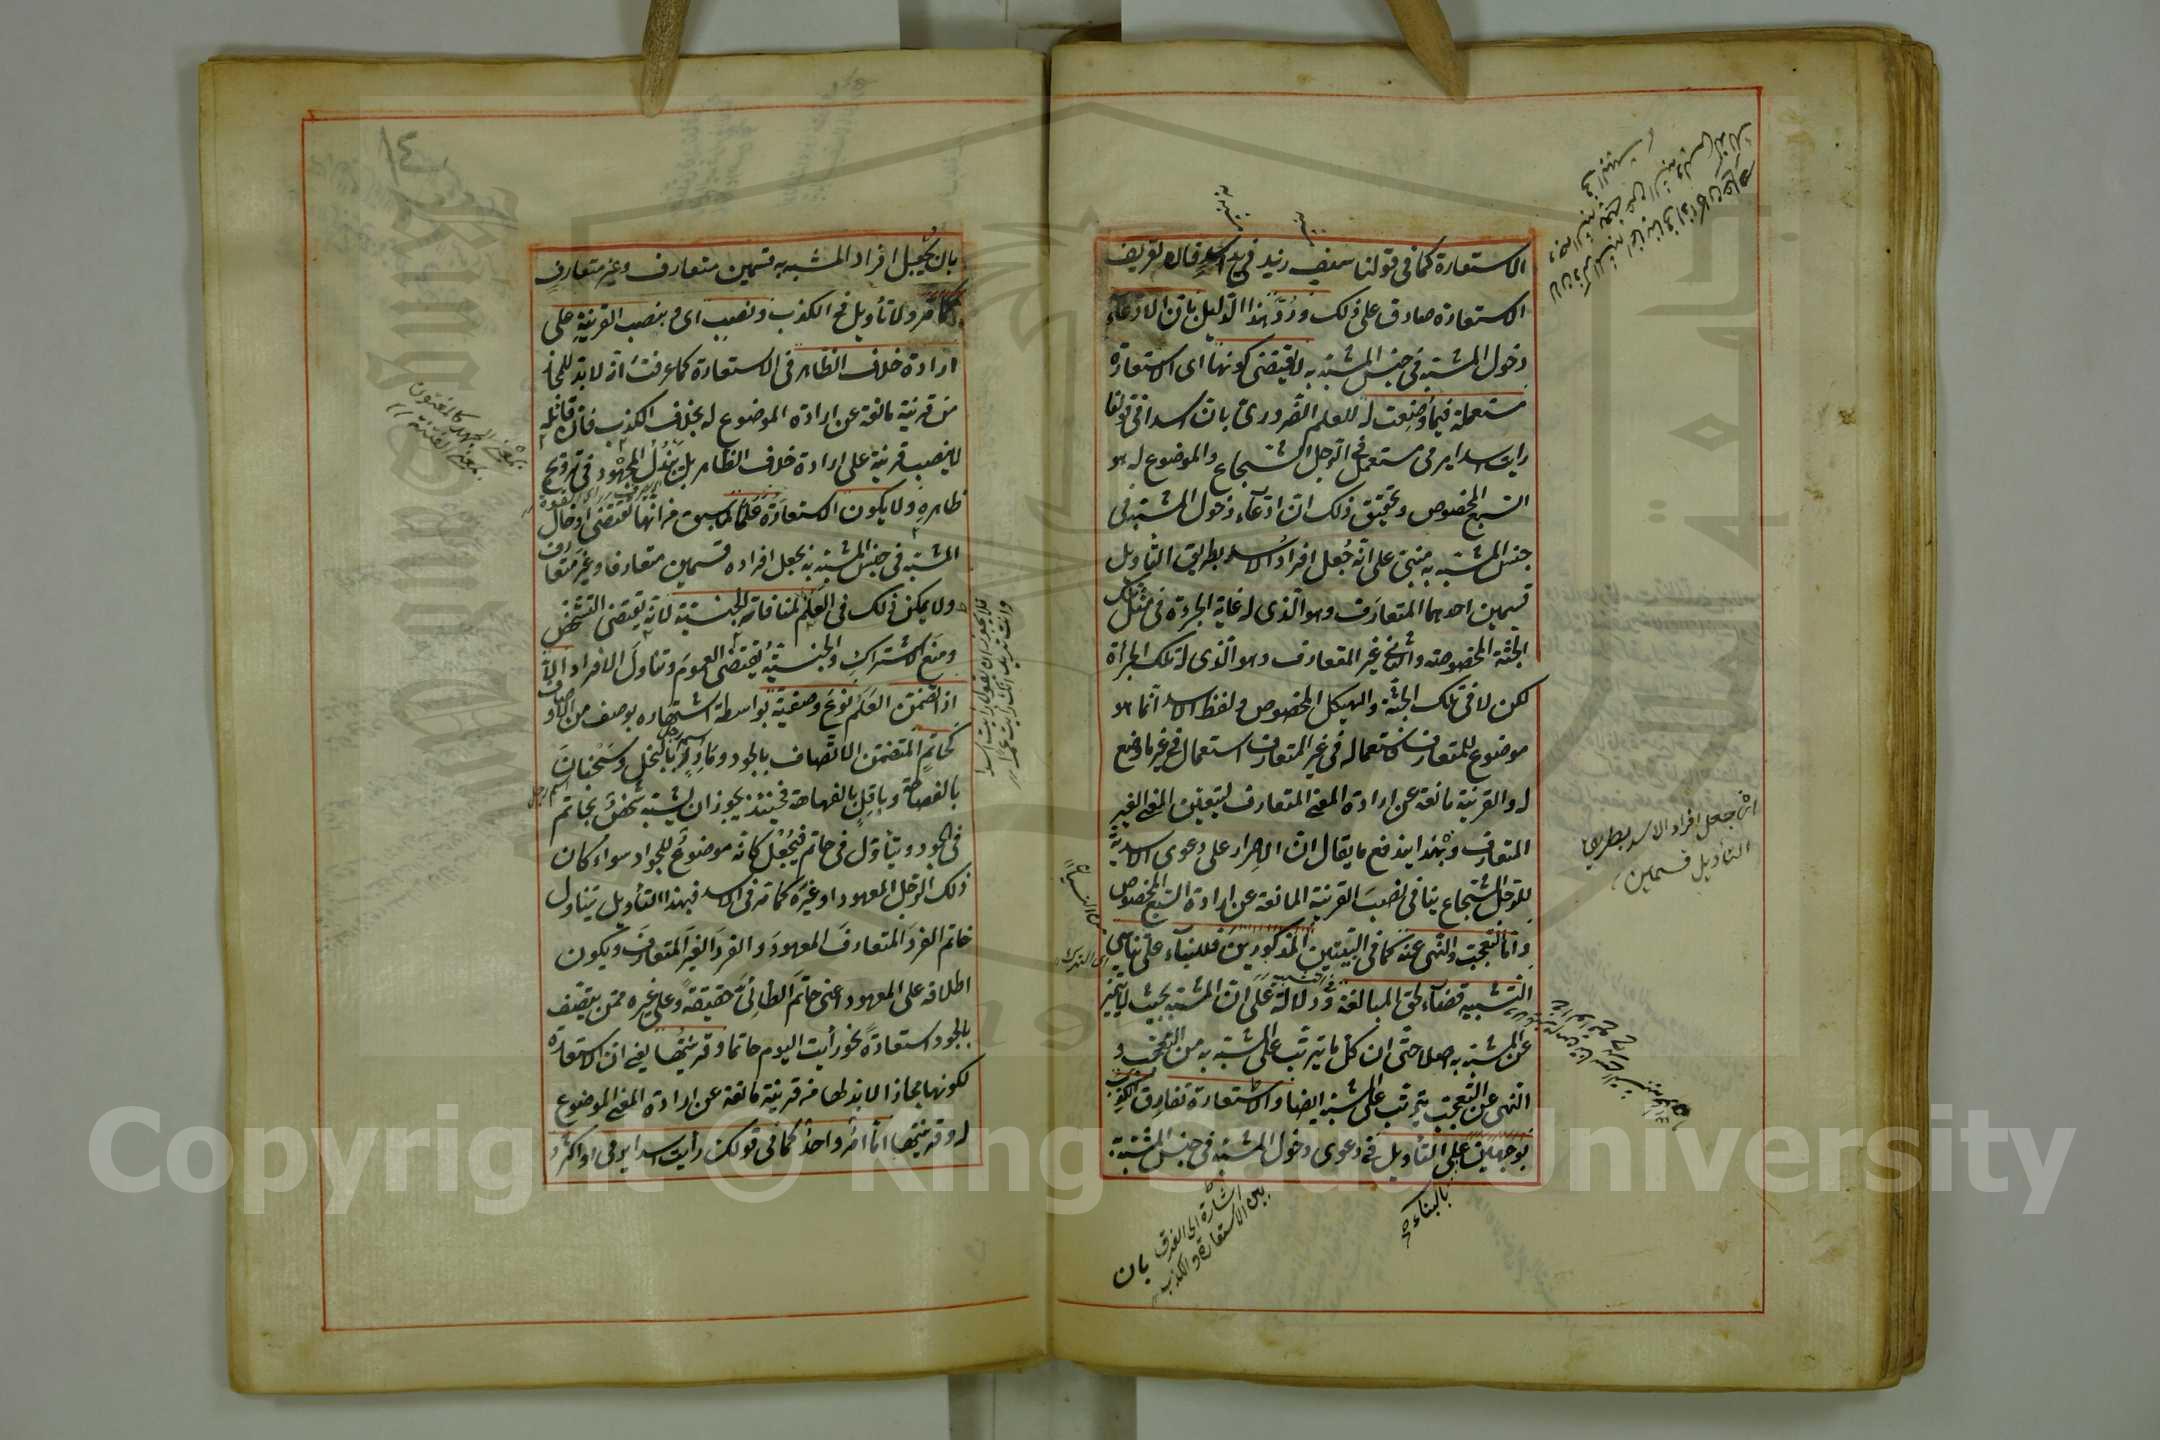 الاستعارة كما في قولنا سيف زيد في يد اسد فان تعريف
الاستعارة صادق على ذلك ورُدّ هذا الدليل بان الادعاء
دخول المشبه في جنس المشبه به لا يقتضى كونها اى الاستعارة
مستعملة فيما وُضِعت له للعلم الضرورى بان اسدا في قولنا
رايت اسدا يرمى مستعمل في الرجل الشجاع والموضوع له هو
السبع المخصوص وتحقيق ذلك ان ادعاء دخول المشبه في
جنس المشبه به مبنى على انه جُعل افرادُ الاسد بطريق التأويل
قسمين احدهما المتعارف وهو الذى له غاية الجرءة في مثل تلك
الجثة المخصوصة والثانى غير المتعارف وهو الذى له تلك الجراة
لكن لا في تلك الجثة والهيكل المخصوص ولفظ الاسد انما هو
موضوع للمتعارف فاستعماله في غير المتعارف استعمال في غير ما وضع
له والقرينة مانعة عن ارادة المعنى المتعارف ليتعين المعنى الغير
المتعارف وبهذا يندفع ما يقال ان الاصرار على دعوى الاسدية
للرجل الشجاع ينافى نصبَ القرينة المانعة عن ارادة السبع المخصوص
واما التعجب والنهى عنه كما في البيتين المذكورين فللبناء على تناسى
التشبيه قضاء لحق المبالغة ودلالة على ان المشبه بحيث لا يتميز
عن المشبه به اصلا حتى ان كل ما يترتب على المشبه به من التعجب و
النهى عن التعجب يترتب على المشبه ايضا والاستعارة تفارق الكذب
بوجهين على التأويل في دعوى دخول المشبه في جنس المشبه به
انه جعل افراد الاسد بطريق
التأويل قسمين
بالبناء
اشارة الى الفرق
بين الاستعارة والكذب
بان
١٤
بان يُجعل افراد المشبه به قسمين متعارف وغير متعارف
كما مر ولا تأويل في الكذب ونصب اى وبنصب القرينة على
ارادة خلاف الظاهر في الاستعارة كما عرفت انه لا بد للمجاز
من قرينة مانعة عن ارادة الموضوع له بخلاف الكذب فان قائله
لا ينصب قرينة على ارادة خلاف الظاهر بل يبذُل المجهود في ترويج
ظاهره ولا يكون الاستعارة علما لما سبق من انها تقتضى ادخال
المشبه في جنس المشبه به بجعل افراده قسمين متعارفا وغير متعارف
ولا يمكن ذلك في العَلَم لمنافاته الجنسية لانه يقتضى التشخص
ومنع الاشتراك والجنسيةُ يقتضى العمومَ وتناولَ الافراد الا
اذا تضمن العَلَم نوعَ وصفية بواسطة اشتهاره بوصف من الاوصاف
كحاتمٍ المتضمن الاتصاف بالجود ومادِرٍ بالبخل وسَحْبان
بالفصاحة وباقِلٍ بالفهاهة فحينئذ يجوز ان يشبه شخصٌ بحاتم
في الجود ويتأوّل في حاتم فيُجْعل كانه موضوعٌ للجواد سواء كان
ذلك الرجل المعهود او غيرَه كما مر في الاسد فبهذا التأويل يتناول
حاتم الفردَ المتعارفَ المعهودَ والفردَ الغيرَ المتعارَف ويكون
اطلاقه على المعهود اعنى حاتمَ الطائىَّ حقيقةً وعلى غيره ممن يتصف
بالجود استعارةً نحو رأيت اليوم حاتما وقرينتُها يعنى ان الاستعارة
لكونها مجازا لا بد لها من قرينة مانعة عن ارادة المعنى الموضوع
له وقرينتها اما امرٌ واحدٌ كما في قولك رأيت اسدا يرمى او اكثرُ
Copyright © King Saud University